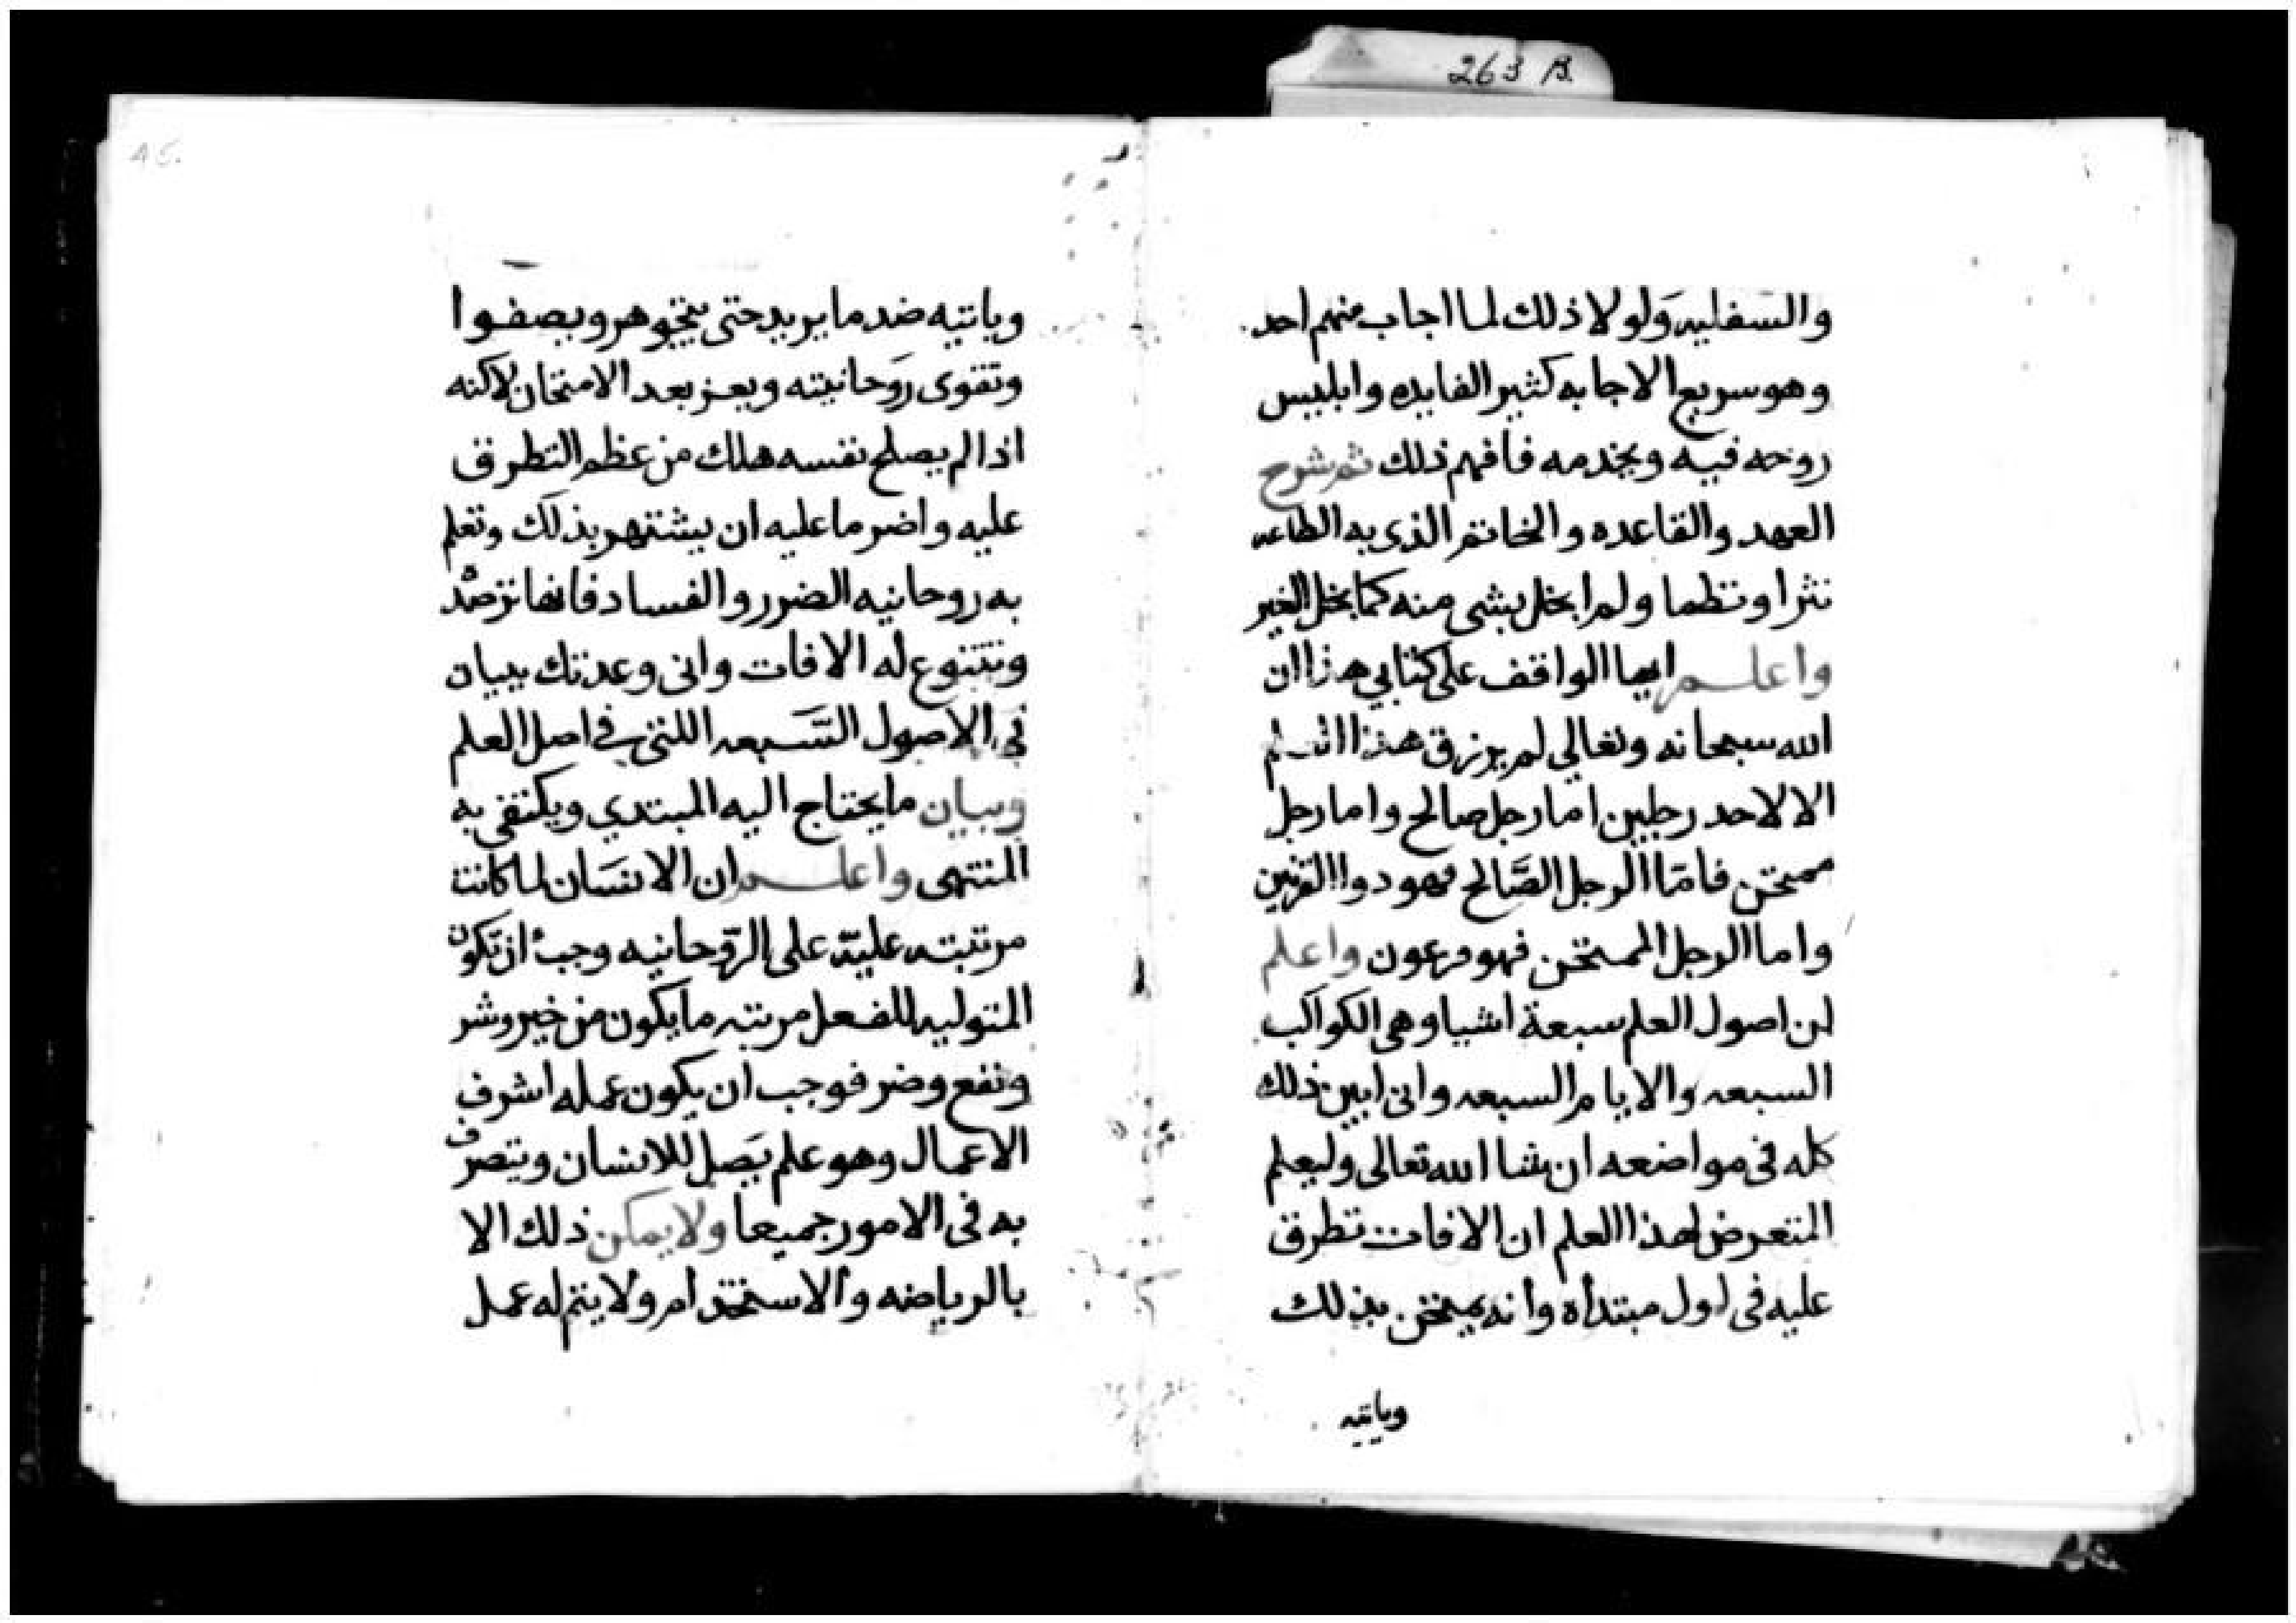 263 B.
والسفليه ولولا ذلك لما اجاب منهم احد
وهو سريع الاجابه كثير الفايده وابليس
روحه فيه ويخدمه فافهم ذلك ثم شرح
العهد والقاعده والخاتم الذى به الطاعه
نثرا ونظما ولم ابخل بشى منه كما بخل الغير
واعلم ايها الواقف على كتابي هذا ان
الله سبحانه وتعالي لم يرزق هذا العلم
الا لاحد رجلين اما رجل صالح واما رجل
ممتحن فامّا الرجل الصَّالح فهو دوا القرنين
واما الرجل الممتحن فهو فرعون واعلم
ان اصول العلم سبعة اشيا وهى الكواكب
السبعه والايام السبعه وانى ابين ذلك
كله فى مواضعه ان شا الله تعالى وليعلم
المتعرض لهذا العلم ان الافات تطرق
عليه فى اول مبتداه وانه يمتحن بذلك
وياتيه
45.
وياتيه ضد ما يريد حتى يتجوهر ويصفوا
وتقوى روَحانيته ويعز بعد الامتحان لاكنه
اذا لم يصلح نفسه هلك من عظم التطرق
عليه واضر ما عليه ان يشتهر بذلك وتعلم
به روحانيه الضرر والفساد فانها ترصُد
وتتنوع له الافات وانى وعدتك ببيان
فى الاصول السَّبعه اللتى في اصل العلم
وبيان ما يحتاج اليه المبتدي ويكتفى به
المنتهى واعلم ان الانسَان لما كانت
مرتبته عليّه على الرّوحانيه وجب ان تكون
المتوليه للفعل مرتبه ما يكون من خير وشر
ونفع وضر فوجب ان يكون عمله اشرف
الاعمال وهو علم يَصِل للانسان ويتصرف
به فى الامور جميعا ولا يمكن ذلك الا
بالرياضه والاستخدام ولا يتم له عمل